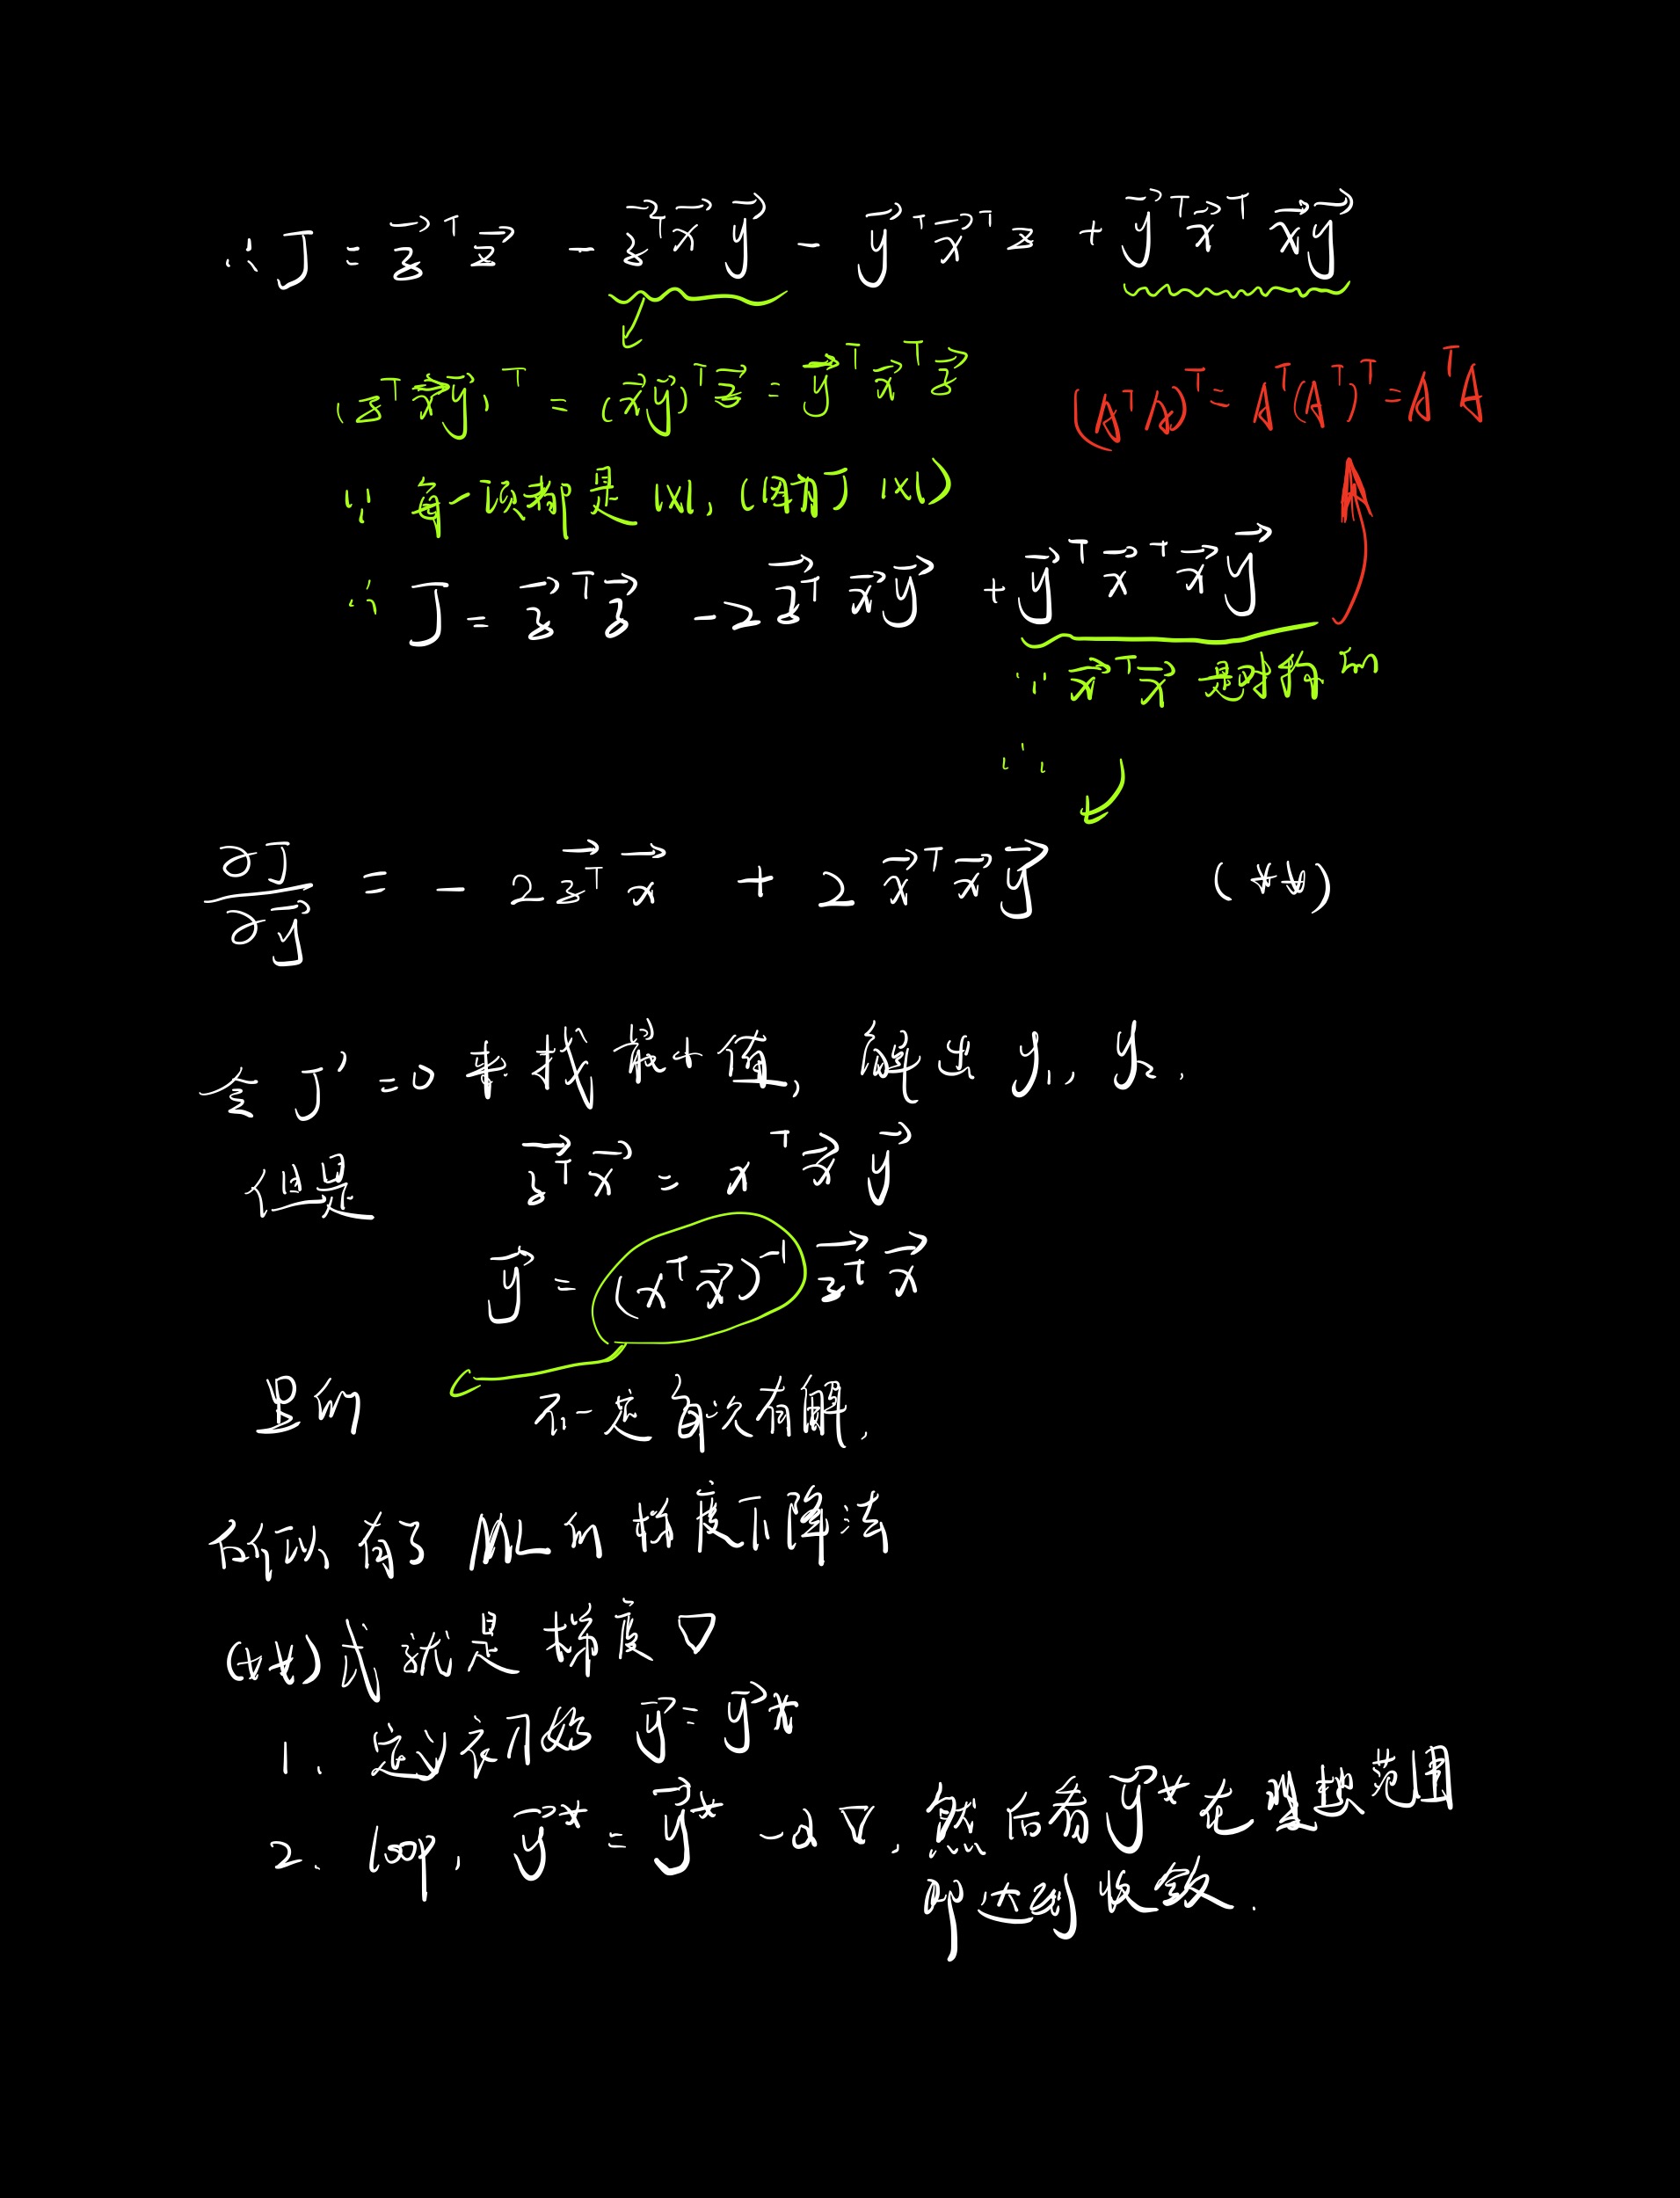 ∴ J = z⃗ᵀ z⃗ - z⃗ᵀ x⃗ y⃗ - y⃗ᵀ x⃗ᵀ z + y⃗ᵀ x⃗ᵀ x⃗ y⃗
(zᵀ x⃗ y⃗)ᵀ = (x⃗ y⃗)ᵀ z⃗ = y⃗ᵀ x⃗ᵀ z⃗
(AᵀA)ᵀ = Aᵀ(Aᵀ)ᵀ = AᵀA
∵ 每一项都是 1x1, (因为 J 1x1)
∴ J = z⃗ᵀ z⃗ - 2 z⃗ᵀ x⃗ y⃗ + y⃗ᵀ x⃗ᵀ x⃗ y⃗
∵ x⃗ᵀ x⃗ 是对称的
∴
∂J/∂y⃗ = - 2 z⃗ᵀ x⃗ + 2 x⃗ᵀ x⃗ y⃗ (**)
令 J' = 0 来找最小值, 解出 y₁, y₂.
但是 z⃗ᵀ x⃗ = xᵀ x⃗ y⃗
y⃗ = (xᵀ x⃗)⁻¹ z⃗ᵀ x⃗
里的 不一定每次有解.
所以有了 ML的 梯度下降法
(**) 式就是 梯度 ∇
1. 定义初始 y⃗ = y⃗*
2. loop, y⃗* = y⃗* - α ∇, 然后看 y⃗* 在理想范围
即达到收敛.